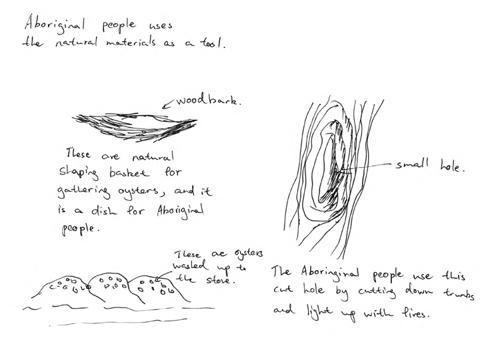 Aboriginal people uses
the natural materials as a tool.
woodbark.
These are natural
shaping basket for
gathering oysters, and it
is a dish for Aboriginal
people.
small hole.
These are oysters
washed up to
the store.
The Aboringinal people use this
cut hole by cutting down trunbs
and light up with fires.